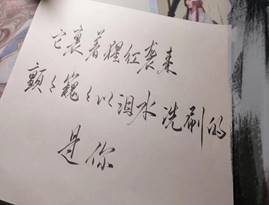 它裹着猩红袭来
颤々巍々以泪水洗刷的
是你